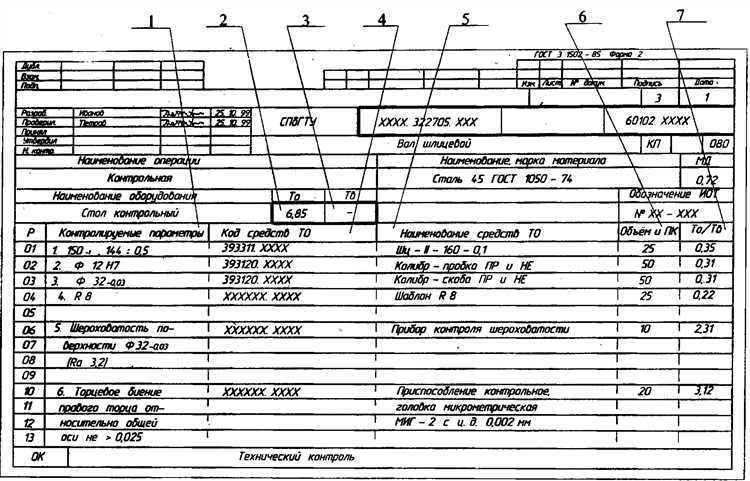 1 2 3 4 5 6 7
ГОСТ 3 1502 - 85 Форма 2
Дубл.
Взам.
Подп.
Изм. Лист № докум. Подпись Дата
3 1
Разраб. Иванов 25. 10. 99
Проверил. Петров 25. 10. 99
Принял
Утвердил
Н. контр.
СПбГТУ XXXX. 322705. XXX 60102 XXXX
Вал шлицевой КП 080
Наименование операции Наименование, марка материала МД
Контрольная Сталь 45 ГОСТ 1050 - 74 0,72
Наименование оборудования То Тв Обозначение ИОТ
Стол контрольный 6,85 - № XX - XXX
Р Контролируемые параметры Код средств ТО Наименование средств ТО Объём и ПК То/Тв
01 393311. XXXX Шц - II - 160 - 0,1 25 0,35
02 2. Ф 12 Н7 393120. XXXX Калибр - пробка ПР и НЕ 50 0,31
03 3. Ф 32-0,03 393120. XXXX Калибр - скоба ПР и НЕ 50 0,31
04 4. R 8 XXXXXX. XXXX Шаблон R 8 25 0,22
05
06 5. Шероховатость по- XXXXXX. XXXX Прибор контроля шероховатости 10 2,31
07 верхности Ф 32-0,03
08 (Ra 3,2)
09
10 6. Торцевое биение XXXXXX. XXXX Приспособление контрольное, 20 3,12
11 правого торца от- головка микрометрическая
12 носительно общей МИГ - 2 с ц. д. 0,002 мм
13 оси не > 0,025
ОК Технический контроль